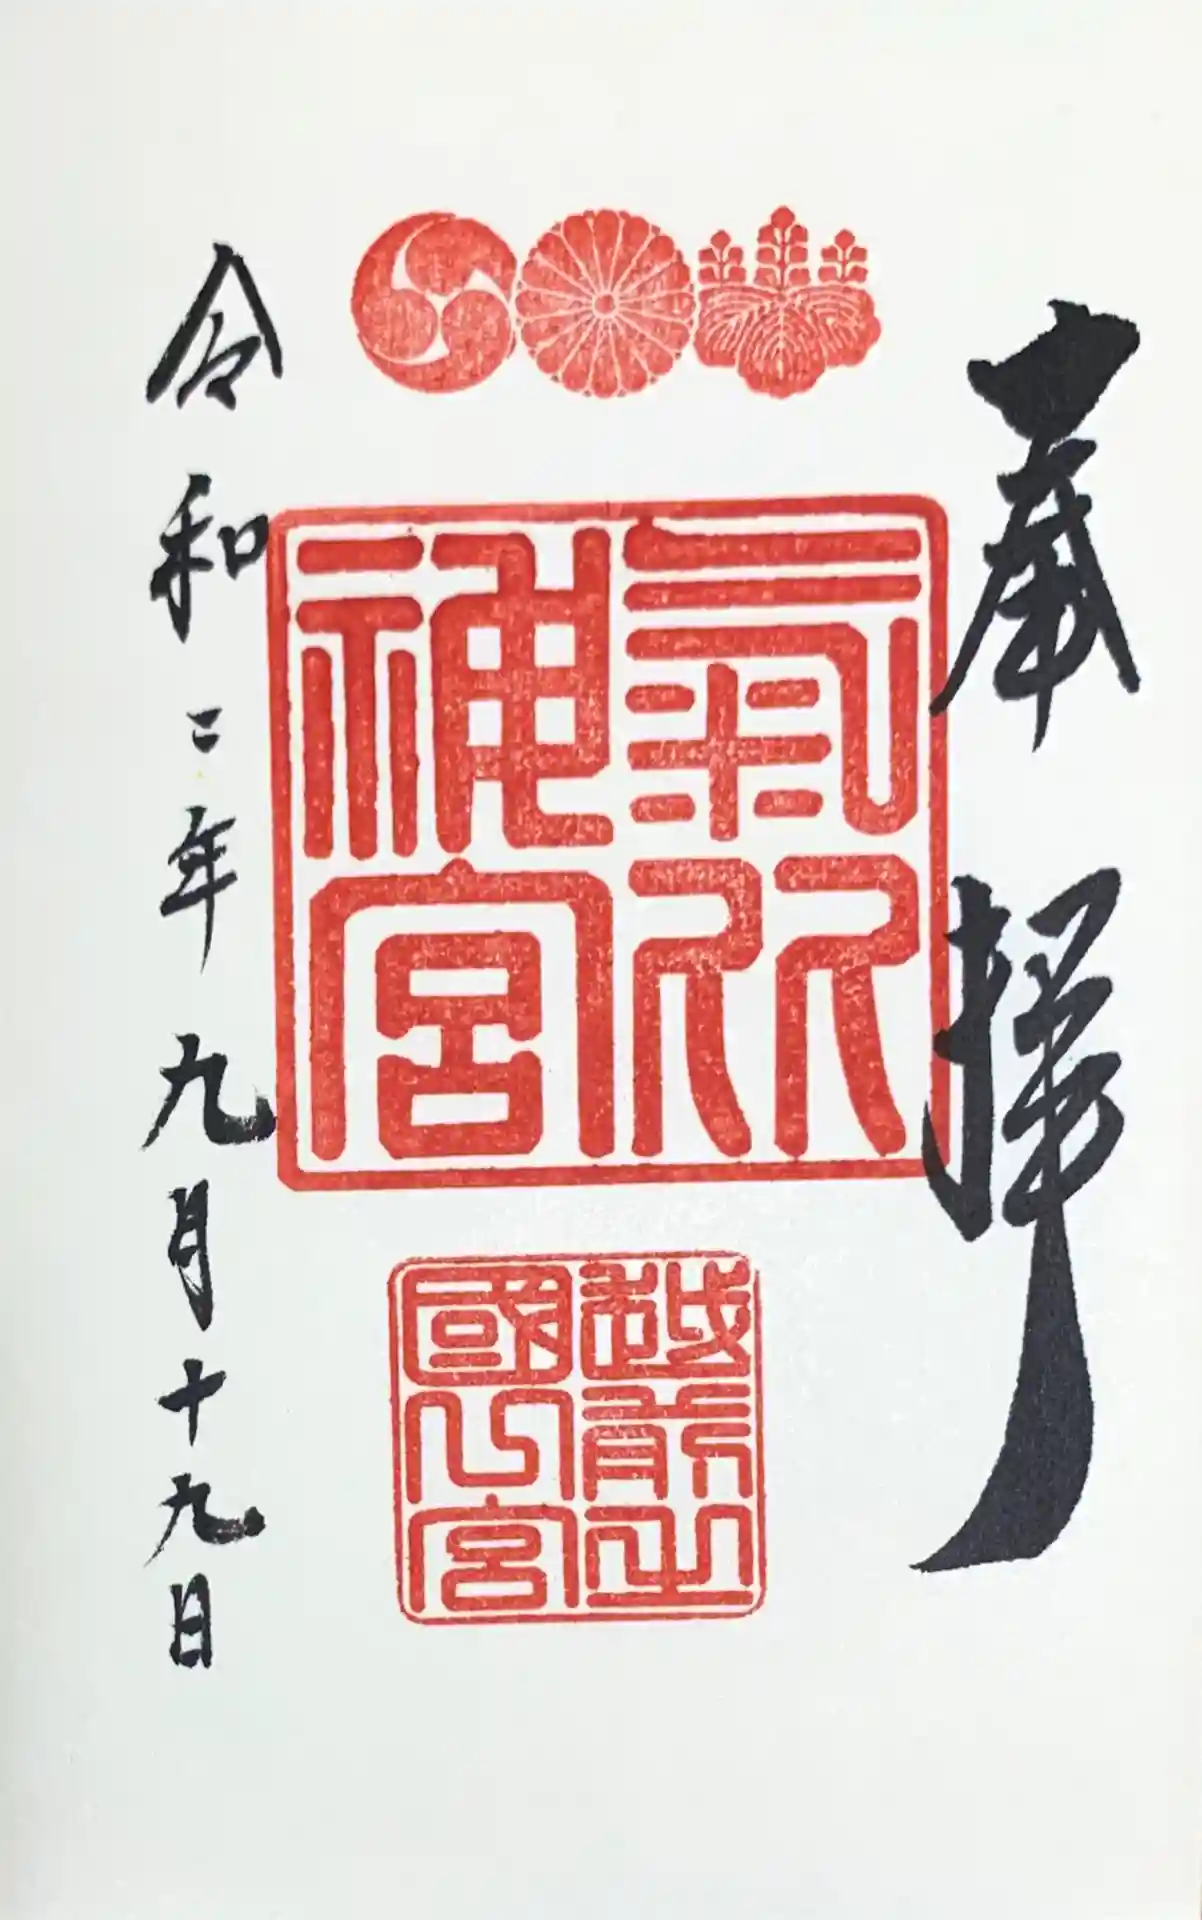 奉拝
氣比
神宮
越前之
國一宮
令和二年九月十九日